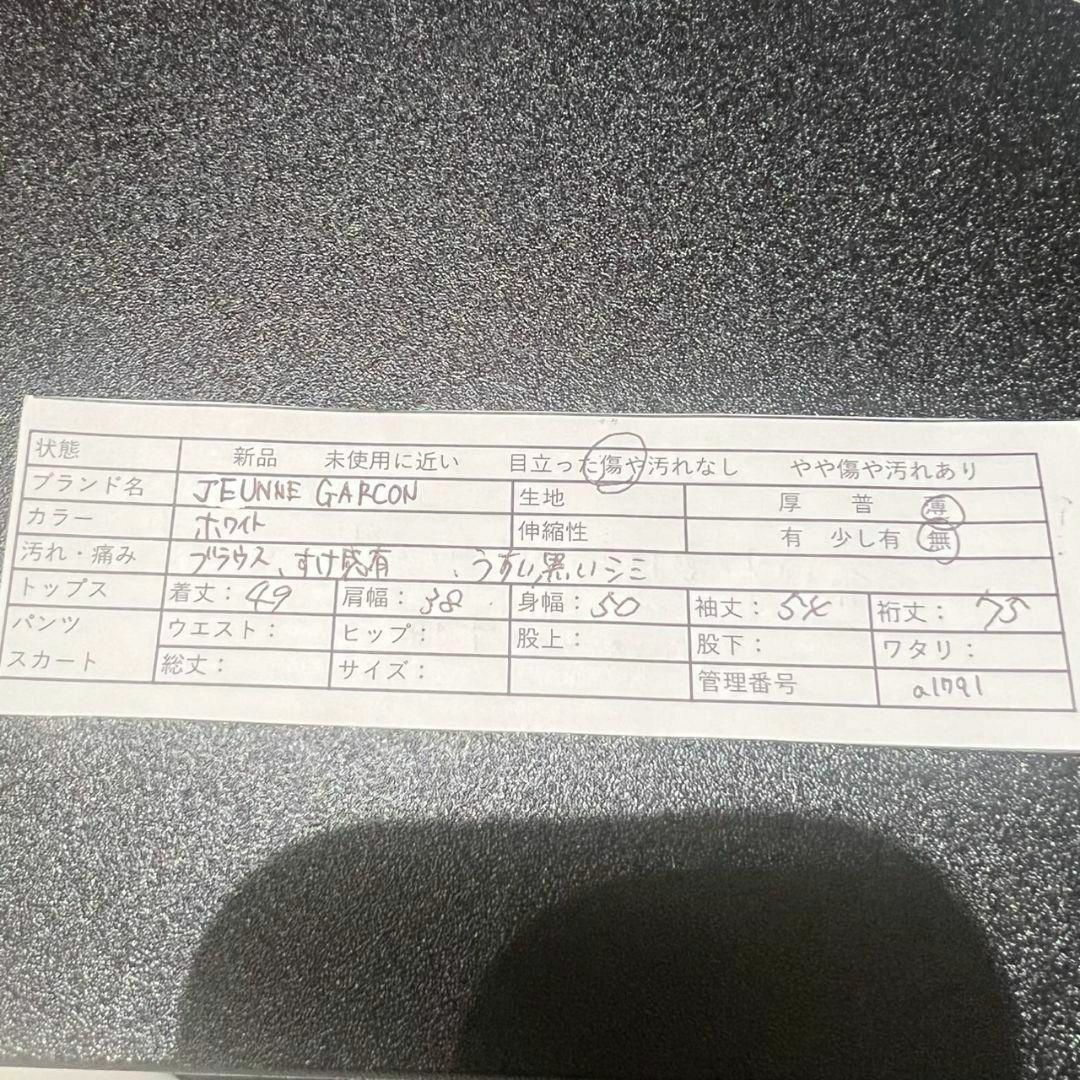 状態 新品 未使用に近い 目立った傷や汚れなし やや傷や汚れあり
ブランド名 JEUNNE GARCON 生地 厚 普 薄
カラー ホワイト 伸縮性 有 少し有 無
汚れ・痛み ブラウス、すけ感有 、うすい黒いシミ
トップス 着丈：49 肩幅：38 身幅：50 袖丈：54 裄丈：75
パンツ ウエスト： ヒップ： 股上： 股下： ワタリ：
スカート 総丈： サイズ： 管理番号 a1791